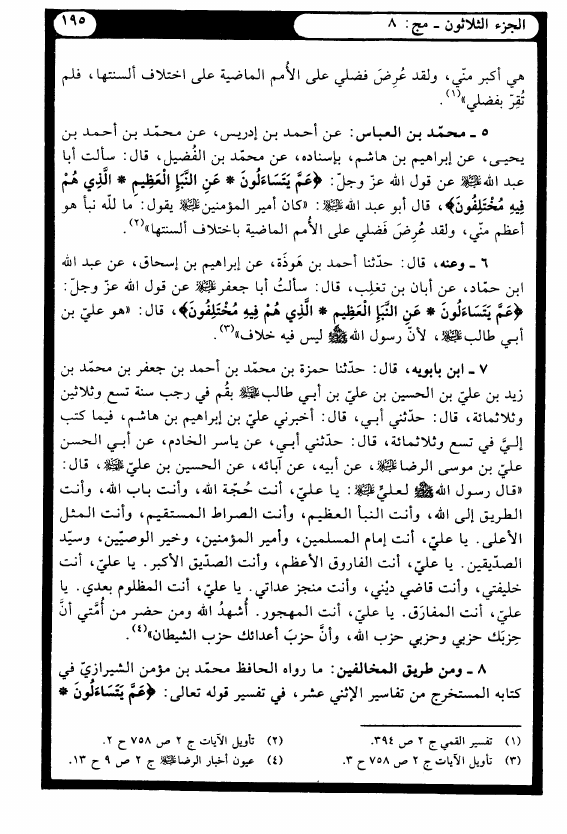 الجزء الثلاثون ـ مج: ٨
١٩٥
هي أكبر منّي، ولقد عُرِضَ فضلي على الأُمم الماضية على اختلاف ألسنتها، فلم
تُقِرّ بفضلي»(١).
٥ ـ محمّد بن العباس: عن أحمد بن إدريس، عن محمّد بن أحمد بن
يحيى، عن إبراهيم بن هاشم، بإسناده، عن محمّد بن الفُضيل، قال: سألت أبا
عبد الله عليه السلام عن قول الله عزّ وجلّ: ﴿عَمَّ يَتَسَاءَلُونَ * عَنِ النَّبَإِ الْعَظِيمِ * الَّذِي هُمْ
فِيهِ مُخْتَلِفُونَ﴾، قال أبو عبد الله عليه السلام: «كان أمير المؤمنين عليه السلام يقول: ما للّه نبأ هو
أعظم منّي، ولقد عُرِضَ فَضلي على الأُمم الماضية باختلاف ألسنتها»(٢).
٦ ـ وعنه، قال: حدّثنا أحمد بن هَوذَة، عن إبراهيم بن إسحاق، عن عبد الله
ابن حمّاد، عن أبان بن تغلِب، قال: سألتُ أبا جعفر عليه السلام عن قول الله عزّ وجلّ:
﴿عَمَّ يَتَسَاءَلُونَ * عَنِ النَّبَإِ الْعَظِيمِ * الَّذِي هُمْ فِيهِ مُخْتَلِفُونَ﴾، قال: «هو عليّ بن
أبي طالب عليه السلام، لأنّ رسول الله ﷺ ليس فيه خلاف»(٣).
٧ ـ ابن بابويه، قال: حدّثنا حمزة بن محمّد بن أحمد بن جعفر بن محمّد بن
زيد بن عليّ بن الحسين بن عليّ بن أبي طالب عليه السلام بقُم في رجب سنة تسع وثلاثين
وثلاثمائة، قال: حدّثني أبي، قال: أخبرني عليّ بن إبراهيم بن هاشم، فيما كتب
إليَّ في تسع وثلاثمائة، قال: حدّثني أبي، عن ياسر الخادم، عن أبي الحسن
عليّ بن موسى الرضا عليه السلام، عن أبيه، عن آبائه، عن الحسين بن عليّ عليه السلام، قال:
«قال رسول الله ﷺ لعليّ عليه السلام: يا عليّ، أنت حُجّة الله، وأنت باب الله، وأنت
الطريق إلى الله، وأنت النبأ العظيم، وأنت الصراط المستقيم، وأنت المثل
الأعلى. يا عليّ، أنت إمام المسلمين، وأمير المؤمنين، وخير الوصيّين، وسيّد
الصدّيقين. يا عليّ، أنت الفاروق الأعظم، وأنت الصدّيق الأكبر. يا عليّ، أنت
خليفتي، وأنت قاضي ديْني، وأنت منجز عداتي. يا عليّ، أنت المظلوم بعدي. يا
عليّ، أنت المفارَق. يا عليّ، أنت المهجور. أُشهدُ الله ومن حضر من أُمّتي أنَّ
حِزبَك حزبي وحزبي حزب الله، وأنَّ حزبَ أعدائك حزب الشيطان»(٤).
٨ ـ ومن طريق المخالفين: ما رواه الحافظ محمّد بن مؤمن الشيرازيّ في
كتابه المستخرج من تفاسير الإثني عشر، في تفسير قوله تعالى: ﴿عَمَّ يَتَسَاءَلُونَ *
(١) تفسير القمي ج ٢ ص ٣٩٤.
(٢) تأويل الآيات ج ٢ ص ٧٥٨ ح ٢.
(٣) تأويل الآيات ج ٢ ص ٧٥٨ ح ٣.
(٤) عيون أخبار الرضا عليه السلام ج ٢ ص ٩ ح ١٣.